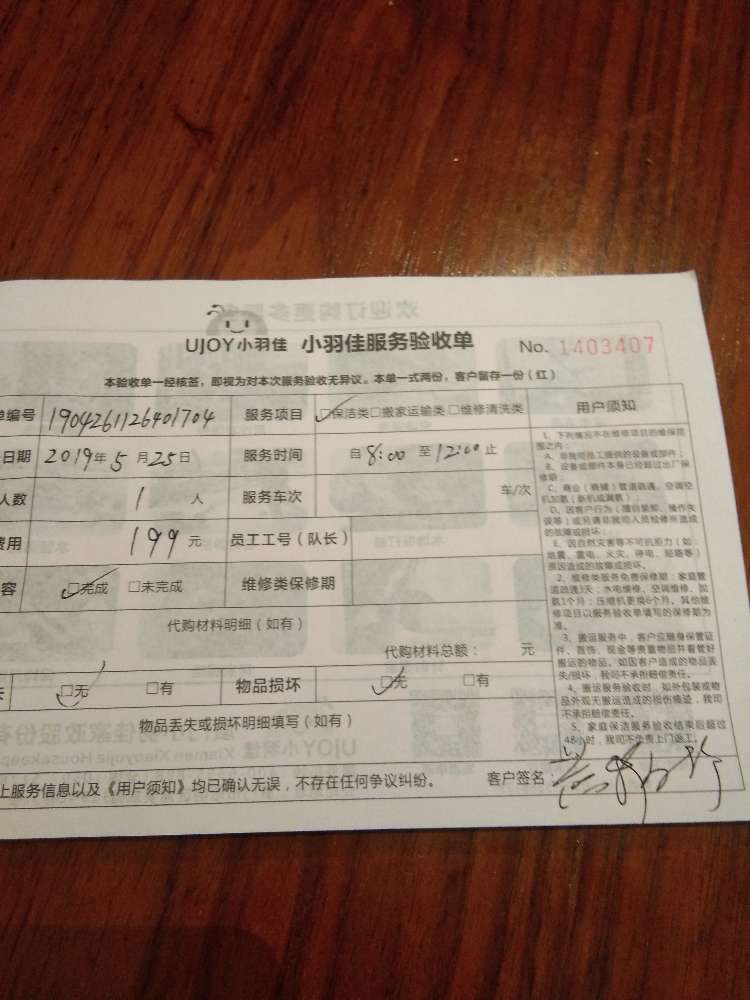 UJOY小羽佳 小羽佳服务验收单 No. 1403407
本验收单一经核签，即视为对本次服务验收无异议。本单一式两份，客户留存一份（红）
单编号 1904261126401704 服务项目 ☑保洁类□搬家运输类□维修清洗类 用户须知
日期 2019年5月25日 服务时间 自8:00至12:00止
人数 1人 服务车次 车/次
费用 199元 员工工号（队长）
容 ☑完成 □未完成 维修类保修期
代购材料明细（如有）
代购材料总额： 元
☑无 □有 物品损坏 ☑无 □有
物品丢失或损坏明细填写（如有）
上服务信息以及《用户须知》均已确认无误，不存在任何争议纠纷。 客户签名：
1、下列情况不在维修项目的维保范
围之内：
A、非我司员工提供的设备或部件；
B、设备或部件本身已经超过出厂保
修期；
C、商业（商铺）管道疏通、空调空
机加氨（新机或漏氨）
D、因客户行为（擅自装卸、操作失
误等）或另请非我司人员检修所造成
的故障或损坏；
E、因自然灾害等不可抗拒力（如：
地震、雷电、火灾、停电、短路等）
原因造成的故障或损坏。
2、维修类服务免费保修期：家庭管
道疏通3天；水电维修、空调维修、加
氨1个月；压缩机更换6个月。其他维
修项目以服务验收单填写的保修期为
准。
3、搬运服务中，客户应随身保管证
件、首饰、现金等贵重物品并看管好
搬运的物品。如因客户造成的物品丢
失/损坏，我司不承担赔偿责任。
4、搬运服务验收时，如外包装或物
品外观无搬运造成的损伤痕迹，我司
不承担赔偿责任。
5、家庭保洁服务验收结束后超过
48小时，我司不免费上门返工。